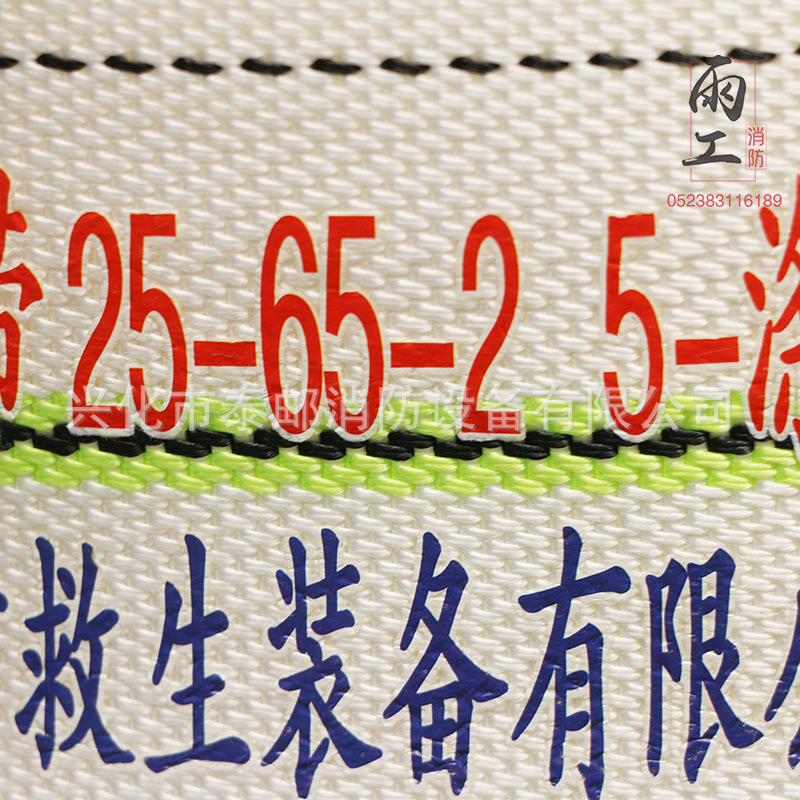 雨工
消防
052383116189
带25-65-2 5-涤
兴化市泰邮消防设备有限公司
救生装备有限公